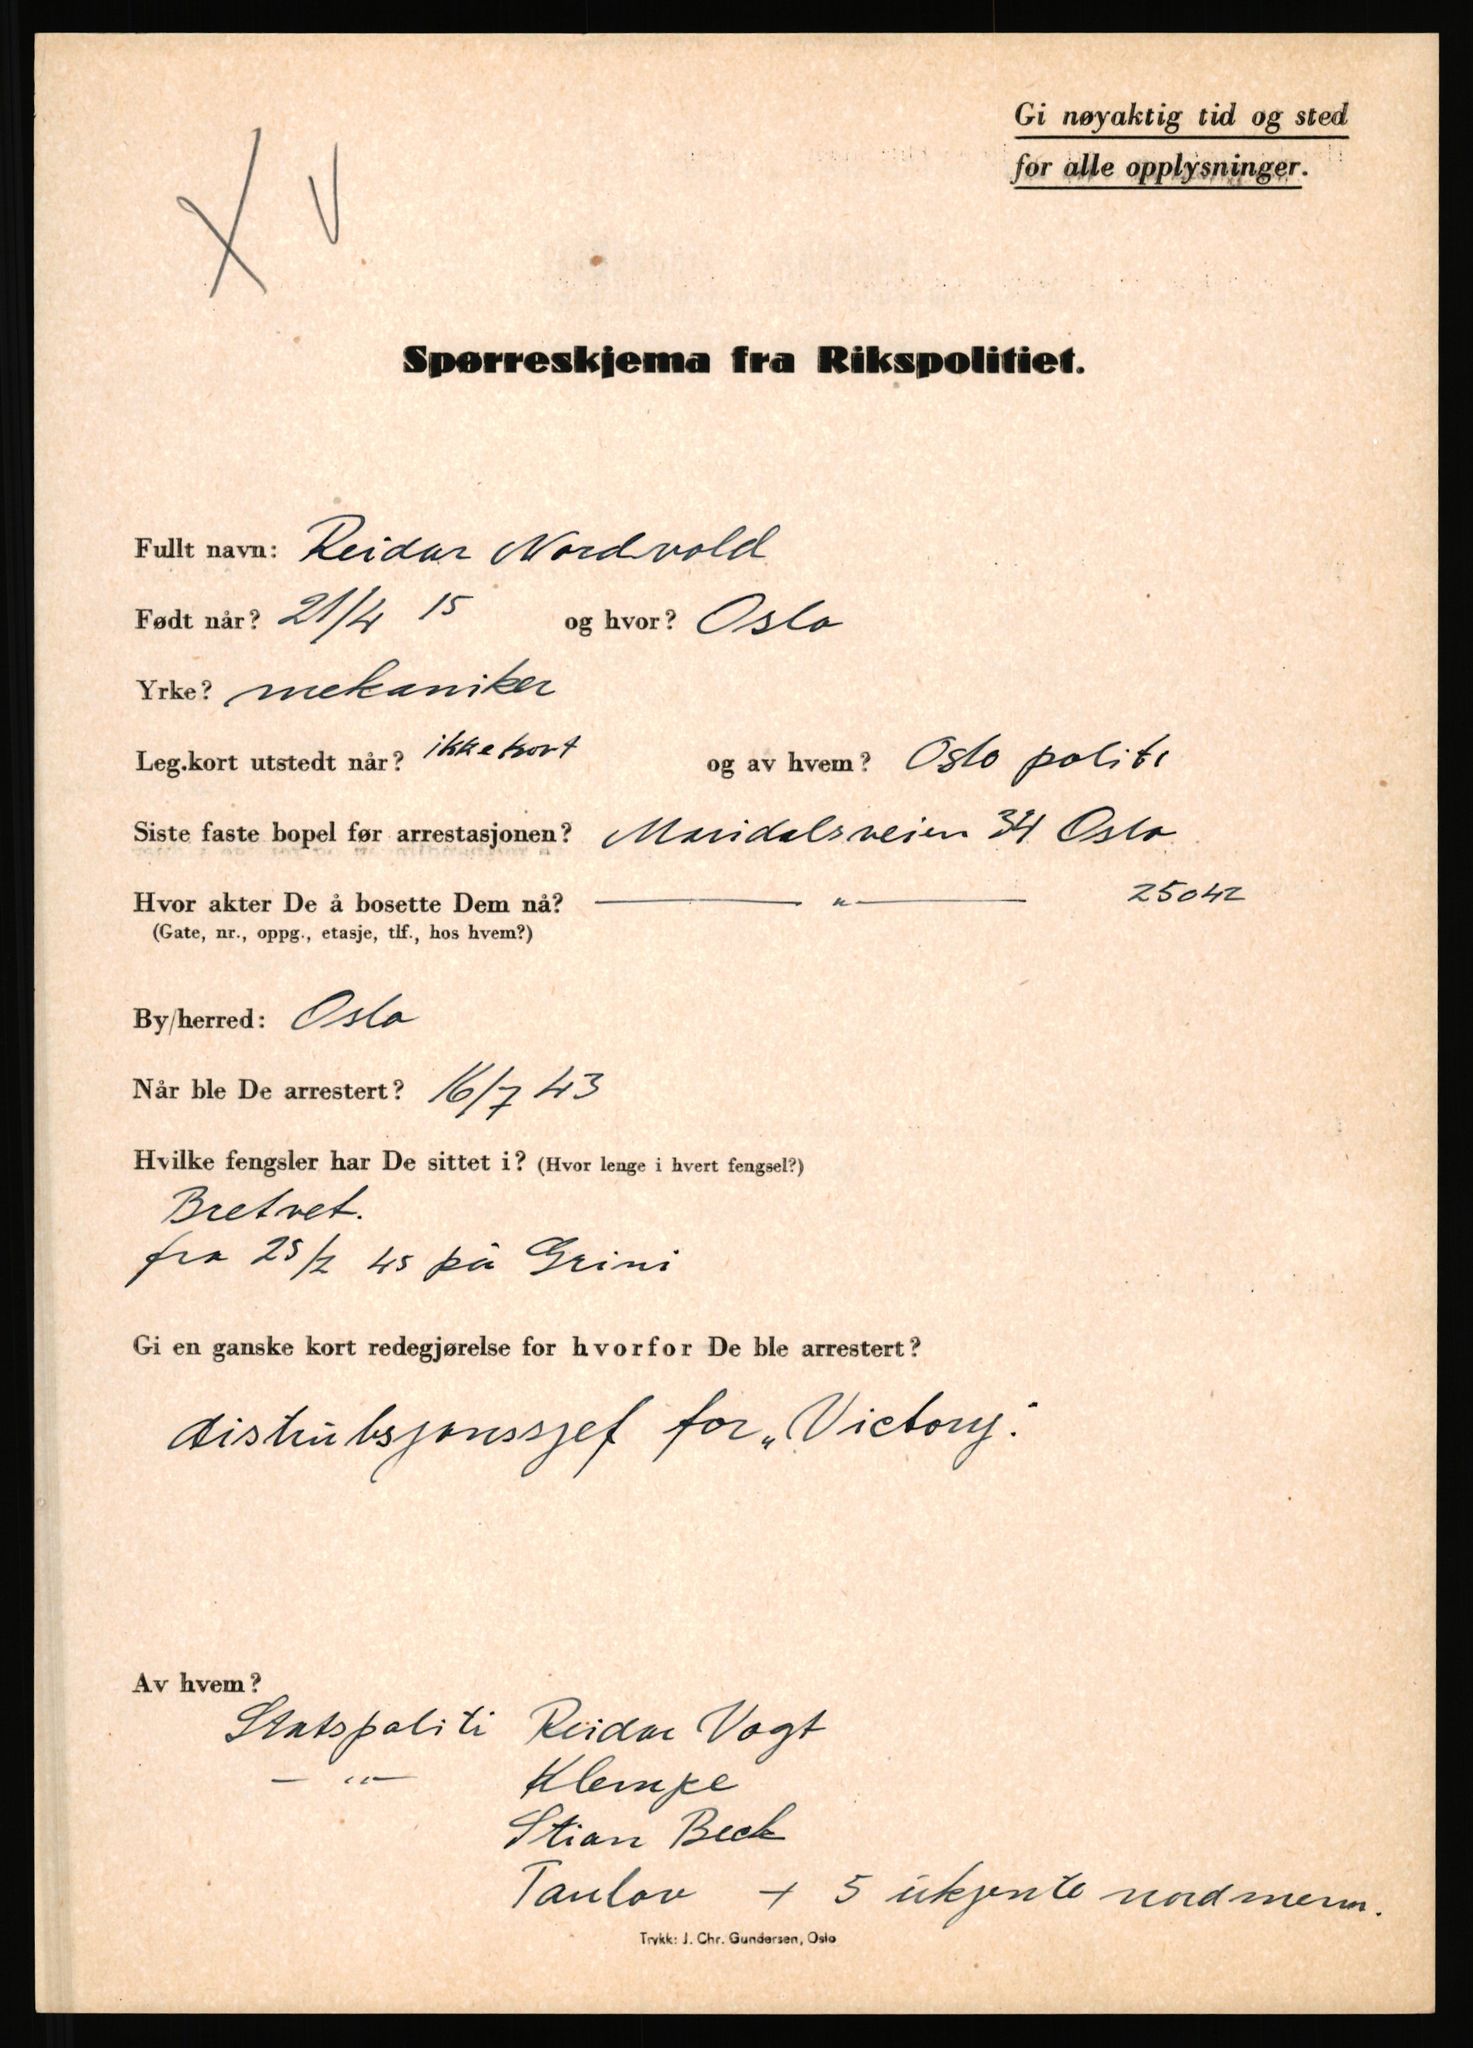 X V
Gi nøyaktig tid og sted
for alle opplysninger.
Spørreskjema fra Rikspolitiet.
Fullt navn: Reidar Nordvold
Født når? 21/4 15 og hvor? Oslo
Yrke? mekaniker
Leg.kort utstedt når? ikke kort og av hvem? Oslo politi
Siste faste bopel før arrestasjonen? Maridalsveien 34 Oslo
Hvor akter De å bosette Dem nå? — " — 25042
(Gate, nr., oppg., etasje, tlf., hos hvem?)
By/herred: Oslo
Når ble De arrestert? 16/7 43
Hvilke fengsler har De sittet i? (Hvor lenge i hvert fengsel?)
Bretvet.
fra 25/2 45 på Grini
Gi en ganske kort redegjørelse for hvorfor De ble arrestert?
distrubsjonssjef for „Victory".
Av hvem?
Statspoliti Reidar Vogt
— " — Klempe
Stian Beck
Taulov + 5 ukjente nordmenn.
Trykk: J. Chr. Gundersen, Oslo